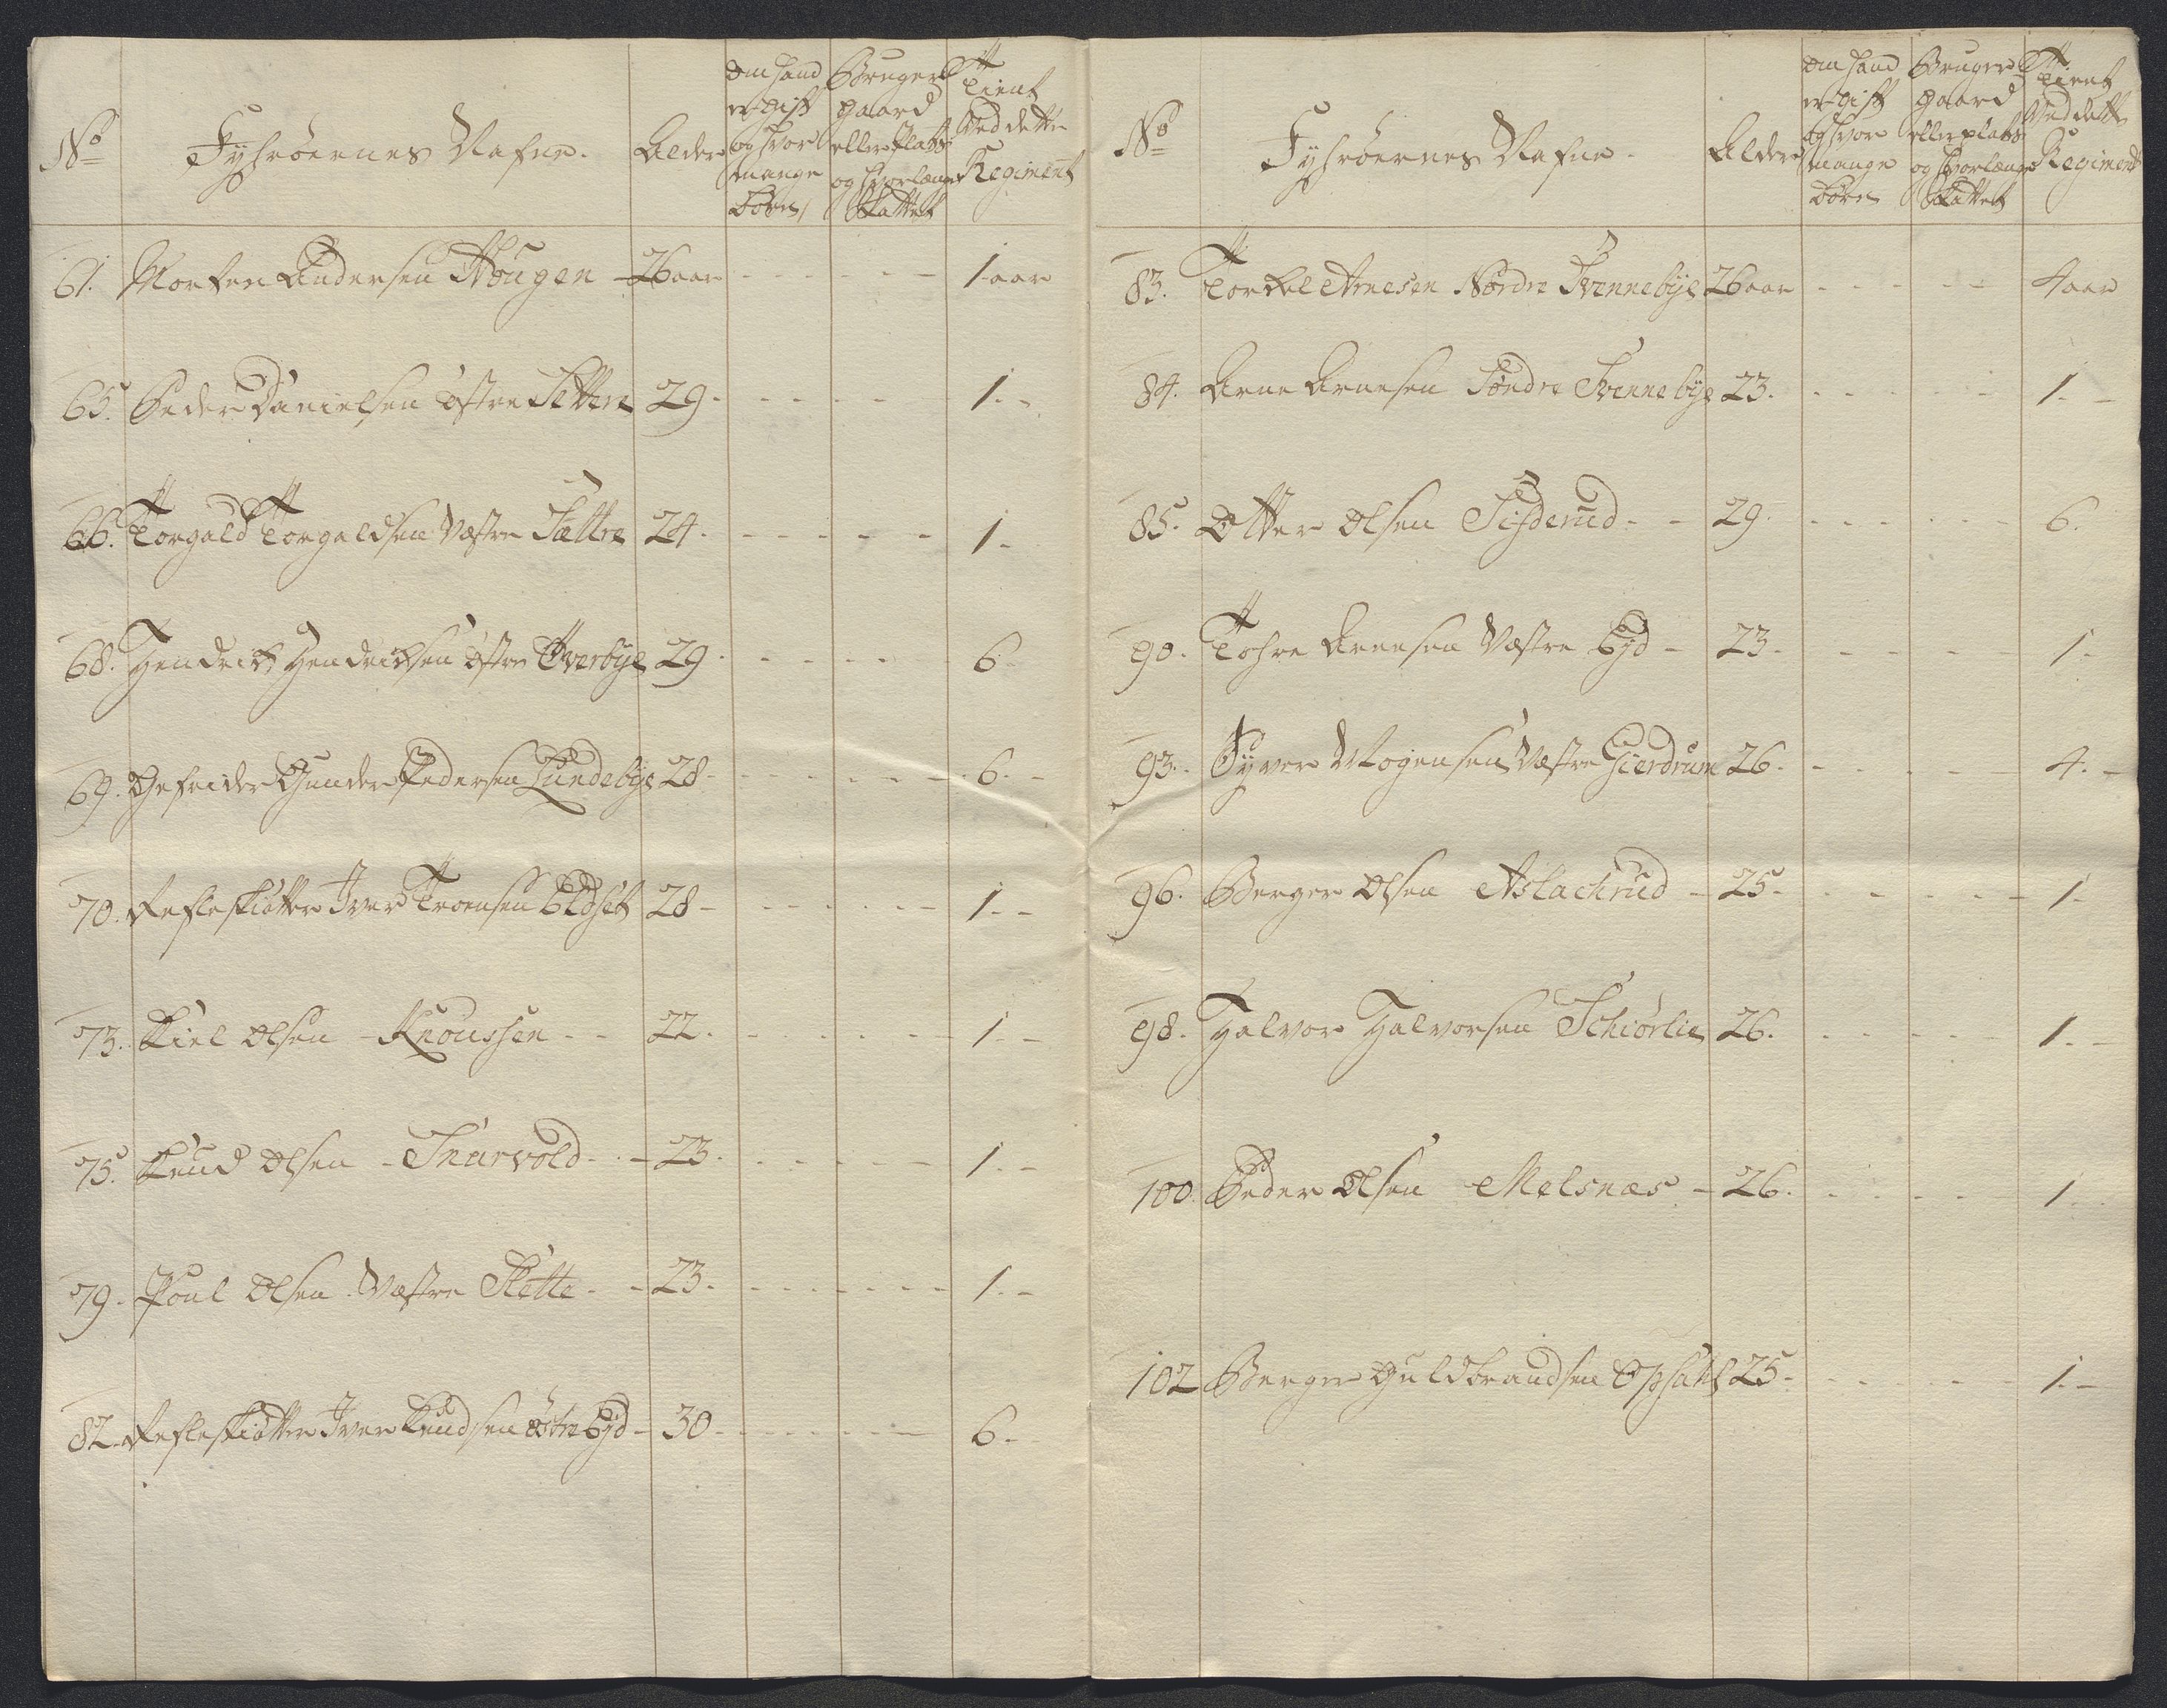 No
Fyhrøernes Nafne.
Alder
Om hand
er gift
og hvor
mange
børn
Bruger
gaard
eller Plads
og hvorlænge
skattet
Tient
Ved dette
Regiment
61. Morten Andersen Hougen - 26 aar - - - - - - 1 aar
65. Peder Danielsen østre Settere 29 - - - - - 1. -
66. Torgald Torgaldsen Vestre Sættre 24. - - - - - 1 -
68. Hendrich Hendrichsen østre Tverbÿe 29 - - - - - 6 -
69. Gefreider Gunder Pedersen Lundebÿe 28 - - - - - - 6. -
70. Refleskiøtter Iver Troensen Eldset 28 - - - - - - 1. -
73. Kiel Olsen - Knoussen - - 22. - - - - - 1. -
75. Knud Olsen - Snarvold - - 23. - - - - - 1. -
79. Poul Olsen Vestre Slette - - 23. - - - - - - 1. -
82. Refleskiøtter Iver Knudsen østre Eÿd - 30 - - - - - - 6 -
No
Fyhrøernes Nafne.
Alder
Om hand
er gift
og hvor
mange
børn
Bruger
gaard
eller plads
og hvorlænge
skattet
Tient
Ved dette
Regiment
83. Torkel Arnesen Nordre Tvennebÿe 26 aar - - - - - 4 aar
84. Arne Arnesen Søndre Tvennebÿe 23. - - - - - 1. -
85. Otter Olsen Sigderud - - 29. - - - - - 6.
90. Tohre Arnesen Vestre Eÿd - 23 - - - - - 1 -
93. Syver Mogensen Vestre Gierdrum 26. - - - - - 4. -
96. Berger Olsen Aslachrud - 25 - - - - - - 1 -
98. Halvor Halvorsen Schiørlie 26. - - - - - 1. -
100. Peder Olsen Melsnæs - 26. - - - - 1. -
102 Berger Guldbrandsen Opsahl 25 - - - - - - 1. -